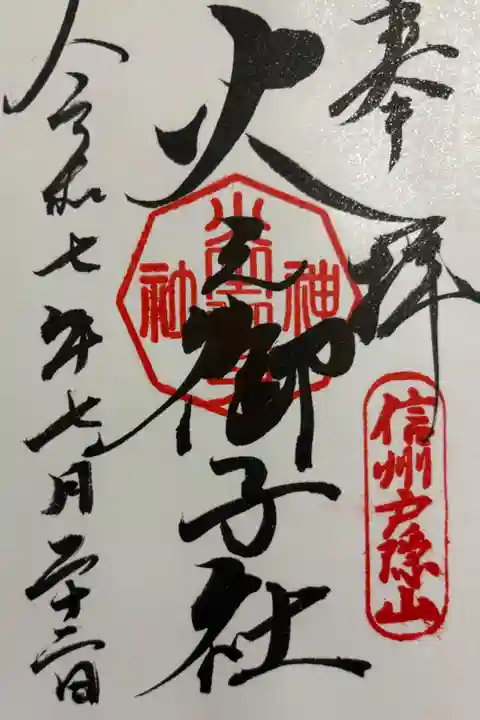 奉拝
信州戸隠山
火之御子社
神社
令和七年七月二十三日